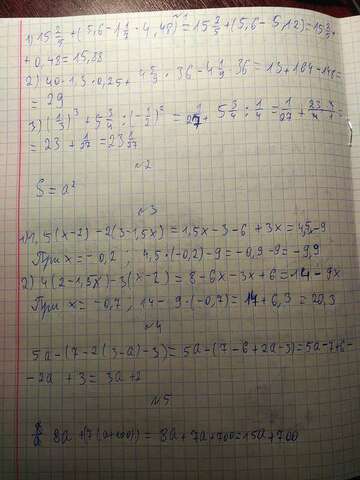 №1
1) 15 2/5 + (5,6 - 1 1/7 · 4,48) = 15 2/5 + (5,6 - 5,12) = 15 2/5 +
+ 0,48 = 15,88
2) 40 · 1,3 · 0,25 + 4 5/9 · 36 - 4 1/9 · 36 = 13 + 164 - 148 =
= 29
3) (1/3)³ + 5 3/4 : (-1/2)² = 1/27 + 5 3/4 : 1/4 = 1/27 + 23/4 · 4/1 =
= 23 + 1/27 = 23 1/27
№2
S = a²
№3
1) 1,5(x-2) - 2(3-1,5x) = 1,5x - 3 - 6 + 3x = 4,5x - 9
При x = -0,2, 4,5 · (-0,2) - 9 = -0,9 - 9 = -9,9
2) 4(2-1,5x) - 3(x-2) = 8 - 6x - 3x + 6 = 14 - 9x
При x = -0,7, 14 - 9 · (-0,7) = 14 + 6,3 = 20,3
№4
5a - (7 - 2(3-a) - 3) = 5a - (7 - 6 + 2a - 3) = 5a - 7 + 6 -
- 2a + 3 = 3a + 2
№5
8a + (7(a+100)) = 8a + 7a + 700 = 15a + 700